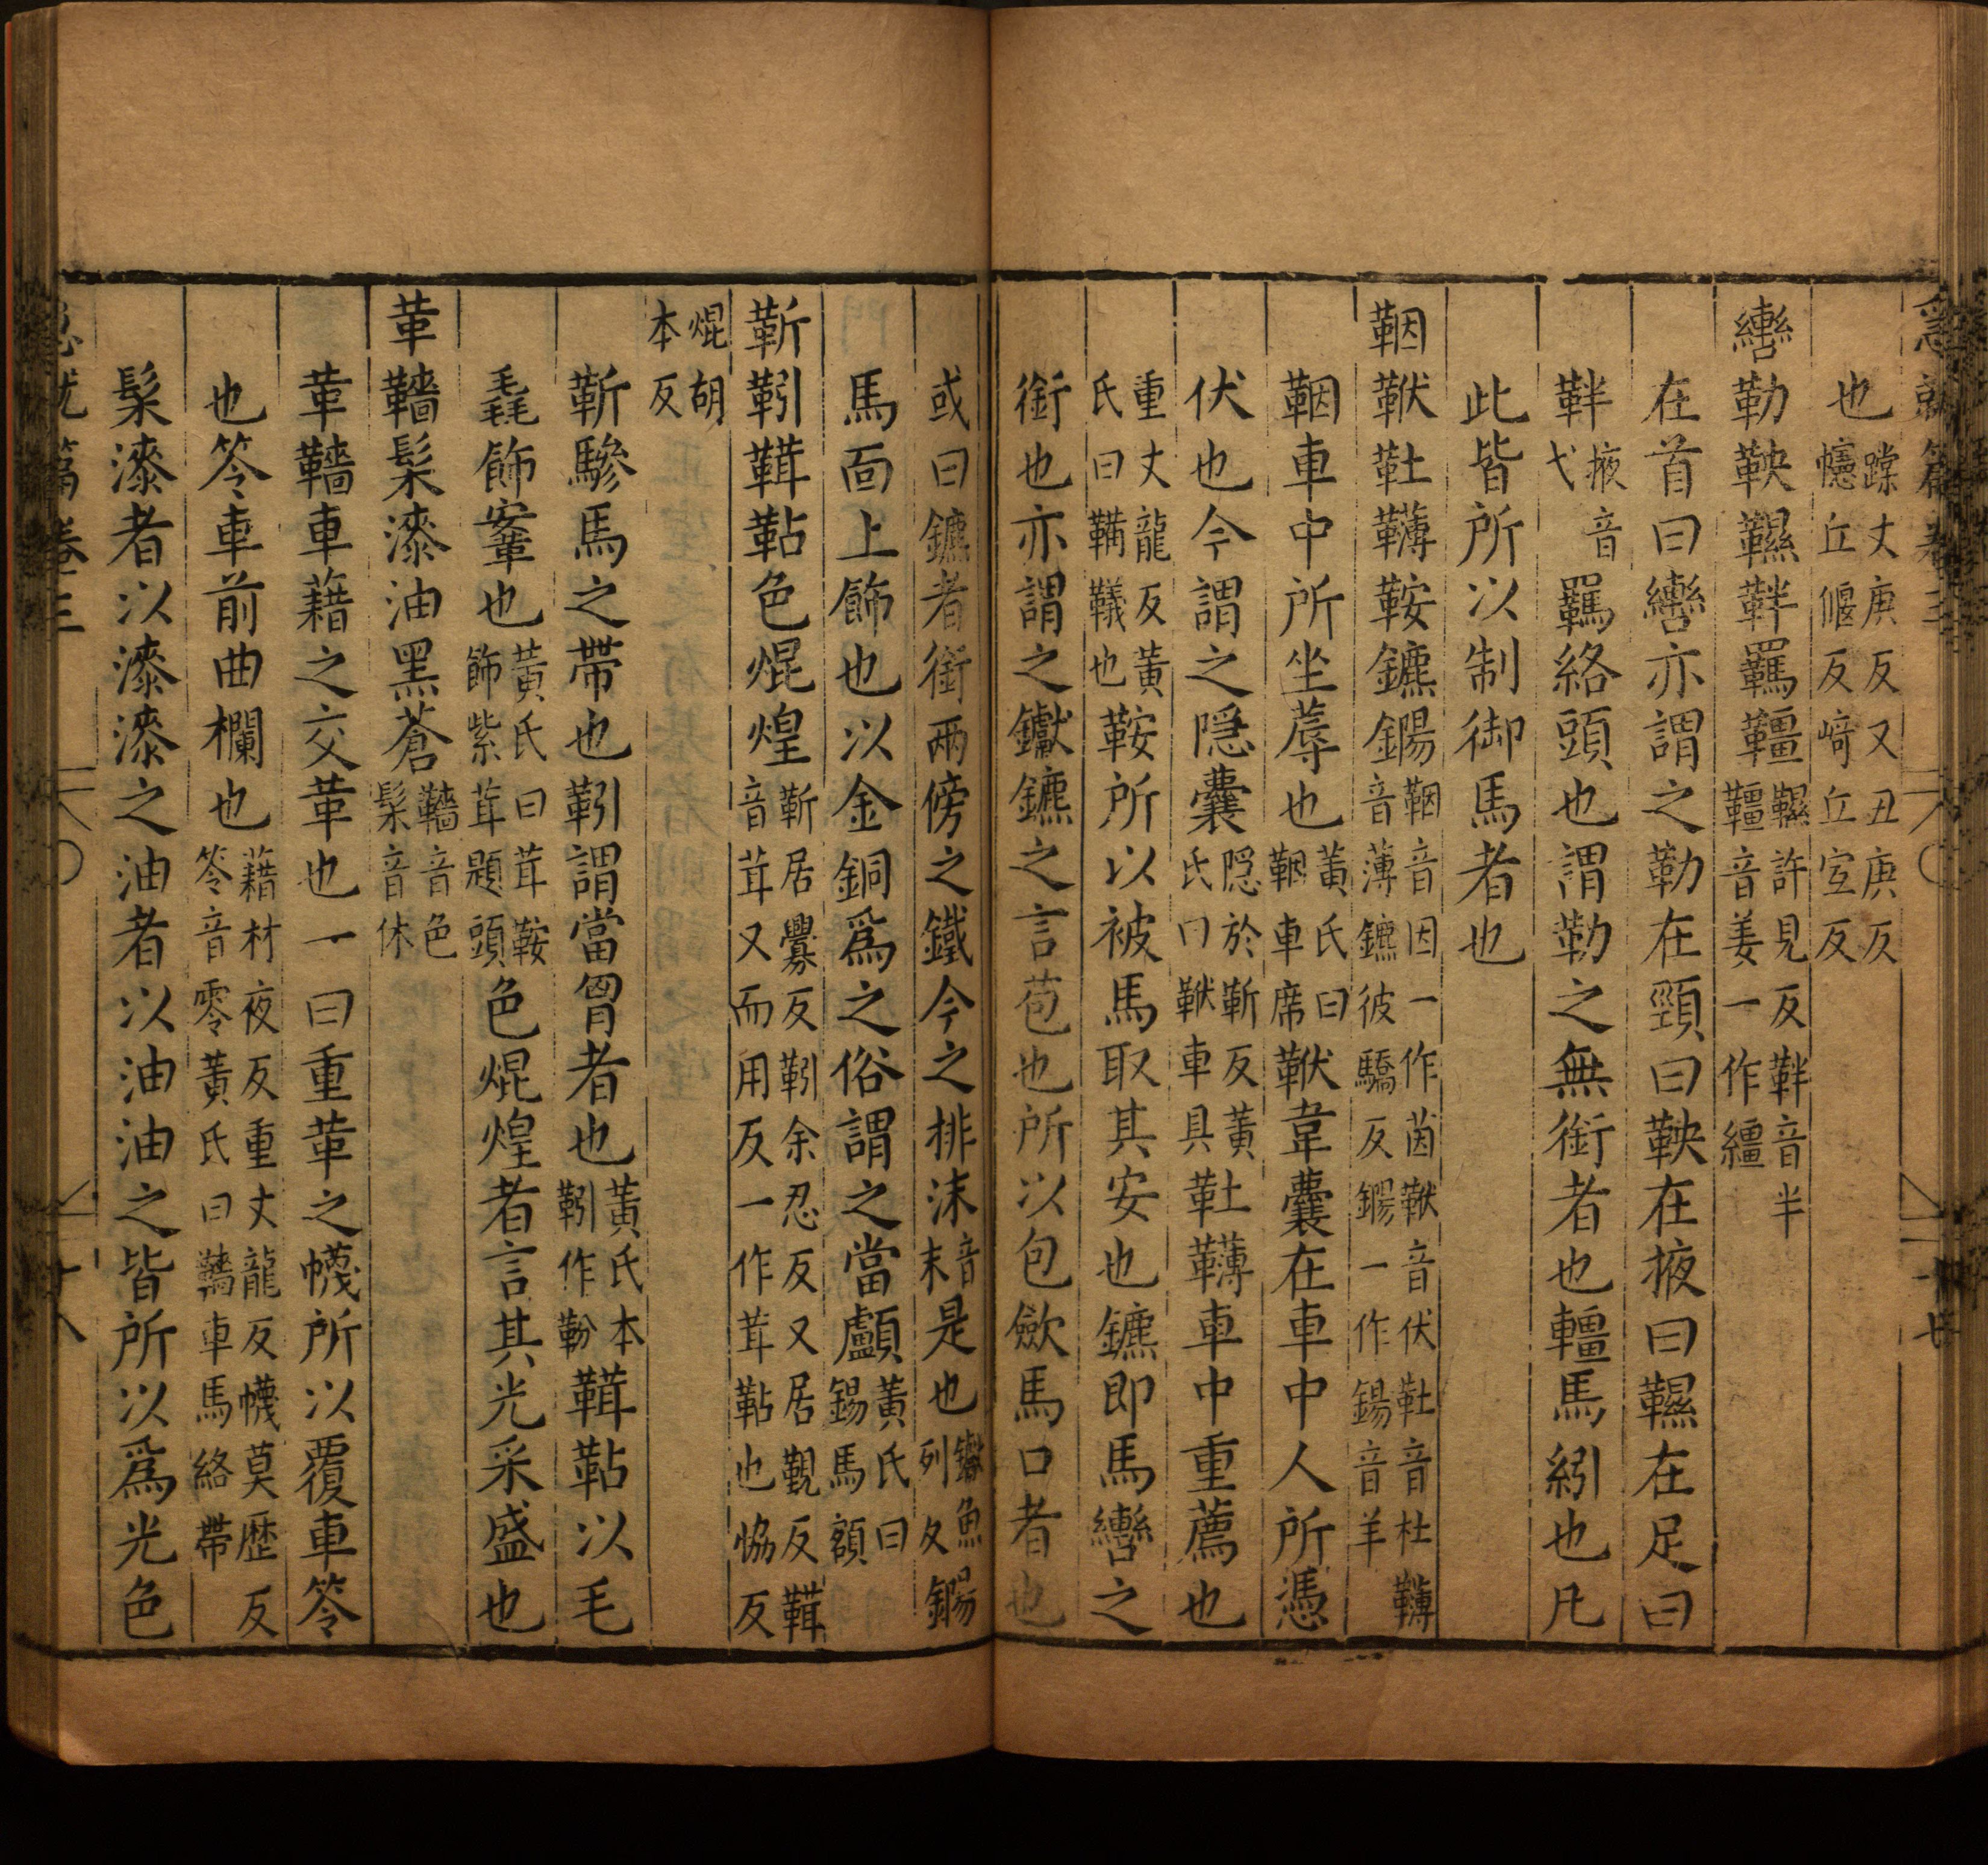 急就篇卷三
也蹀丈庚反又丑庚反幰丘偃反﨑丘宜反
轡勒鞅韅靽羈韁韅許見反靽音半韁音姜一作繮
在首曰轡亦謂之勒在頸曰鞅在掖曰韅在足曰
靽掖音弋羈絡頭也謂勒之無銜者也韁馬紖也凡
此皆所以制御馬者也
鞇靯䩲鞍鑣鍚鞇音因一作茵䩲音伏靯音杜䪙音薄鑣彼驕反鍚一作鍚音羊
鞇車中所坐蓐也黃氏曰鞇車席韋囊在車中人所憑
伏也今謂之隱囊隱於靳反黃氏曰車具靯䪙車中重薦也
重丈龍反黃氏曰鞲䩭也鞍所以被馬取其安也鑣即馬轡之
銜也亦謂之钀鑣之言苞也所以包歛馬口者也
或曰鑣者銜兩傍之鐵今之排沫音末是也钀魚列反鍚
馬面上飾也以金銅爲之俗謂之當顱黃氏曰鍚馬額
靳靷鞲鞊色焜煌靳居釁反靷余忍反又居覲反鞲音茸又而用反一作茸鞊也恊反
焜胡本反
靳驂馬之帶也靷謂當胷者也黃氏本靷作䩿鞲鞊以毛
毳飾鞌也黃氏曰茸鞍飾紫茸題頭色焜煌者言其光采盛也
革轖髹漆油黑蒼轖音色髹音休
革轖車藉之交革也一曰重革之幭所以覆車笭
也笭車前曲欄也藉材夜反重丈龍反幭莫歷反笭音零黃氏曰轖車馬絡帶
髹漆者以漆漆之油者以油油之皆所以爲光色
急就篇卷三